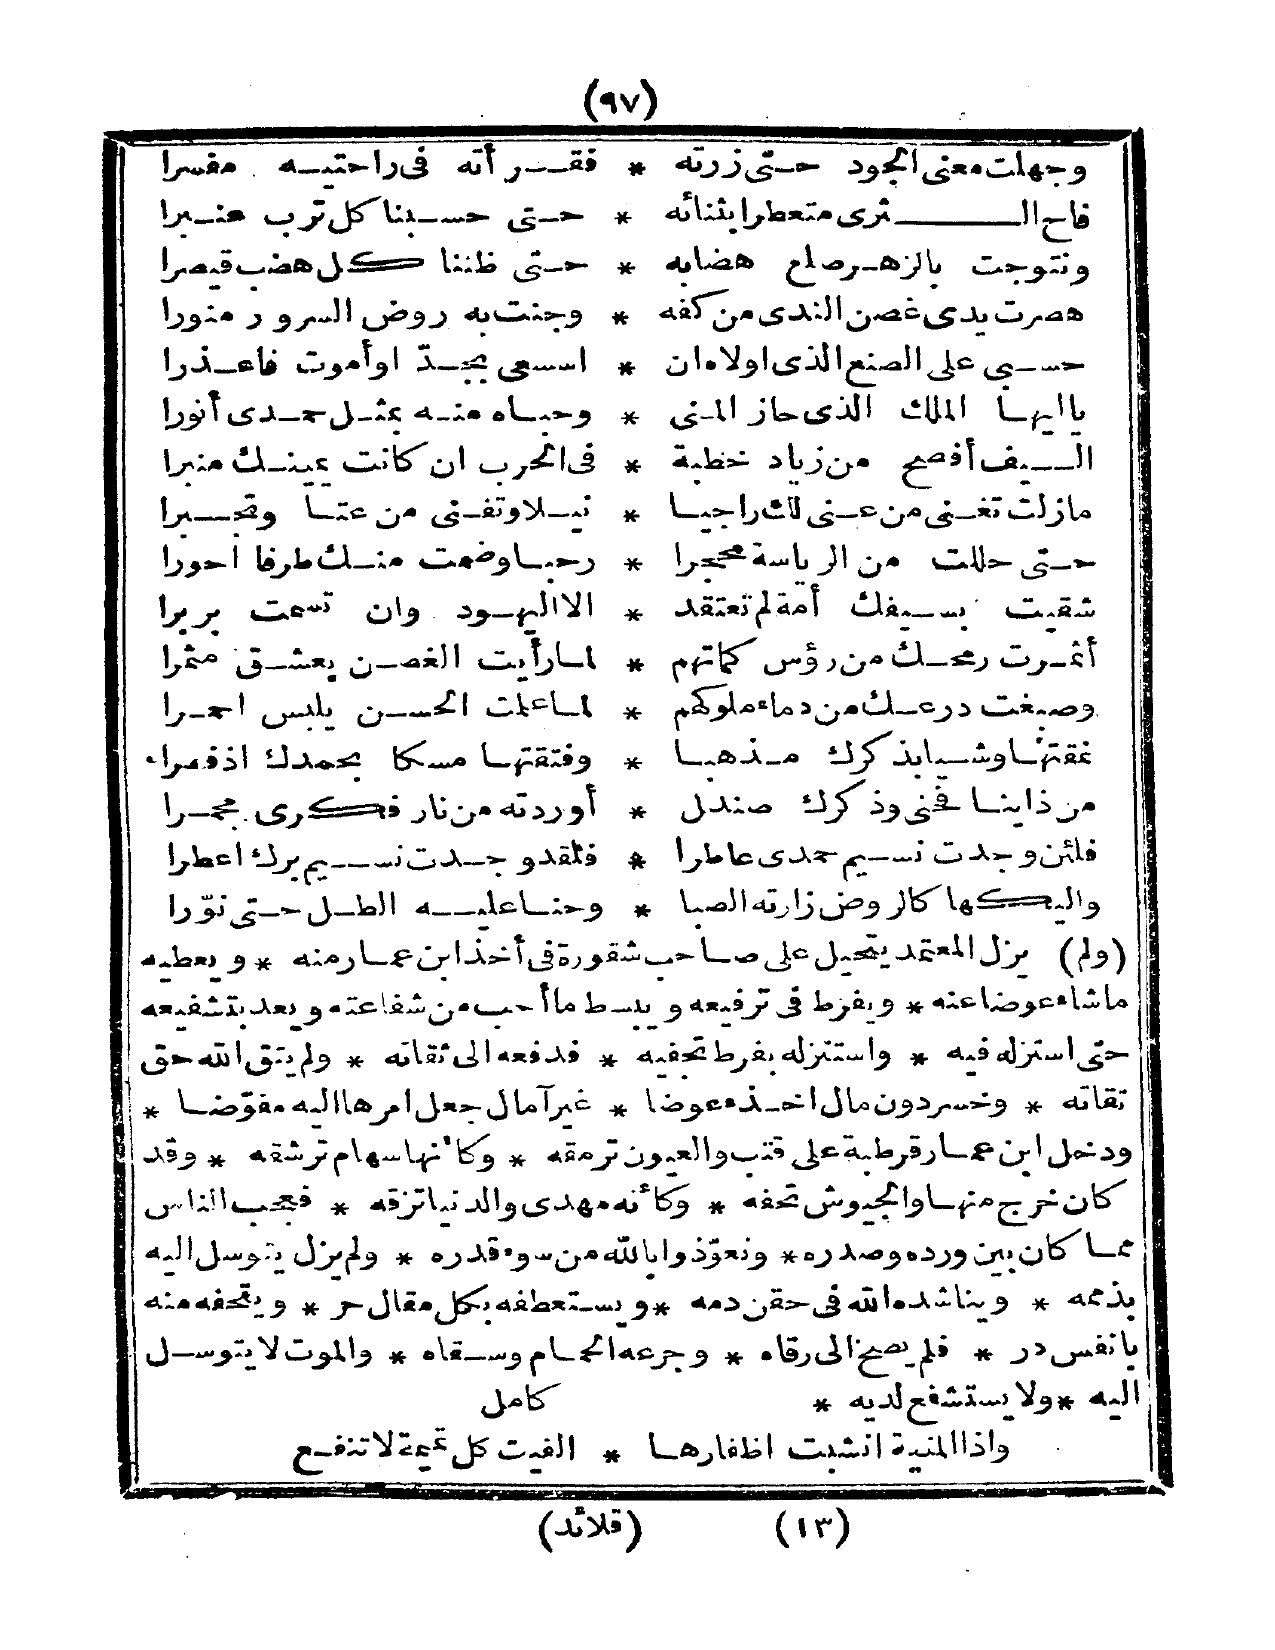 (٩٧)
وجهلت معنى الجود حتى زرته * فقرأته فى راحتيه مفسرا
فاح الثرى متعطرا بثنائه * حتى حسبنا كل ترب عنبرا
وتتوجت بالزهر صلع هضابه * حتى ظننا كل هضب قيصرا
هصرت يدى غصن الندى من كفه * وجنت به روض السرور منورا
حسبى على الصنع الذى اولاه ان * اسعى بجدّ او أموت فاعذرا
ياايها الملك الذى حاز المنى * وحباه منه بمثل حمدى أنورا
السيف أفصح من زياد خطبة * فى الحرب ان كانت يمينك منبرا
مازلت تغنى من عنى لك راجيا * نيلا وتفنى من عتا وتجبرا
حتى حللت من الرياسة محجرا * رحبا وضمت منك طرفا احورا
شقيت بسيفك أمة لم تعتقد * الا اليهود وان تسمت بربرا
أثمرت رمحك من رؤس كماتهم * لما رأيت الغصن يعشق مثمرا
وصبغت درعك من دماء ملوكهم * لما علمت الحسن يلبس احمرا
نمقتها وشيا بذكرك مذهبا * وفتقتها مسكا بحمدك اذفرا
من ذا ينافحنى وذكرك صندل * أوردته من نار فكرى مجمرا
فلئن وجدت نسيم حمدى عاطرا * فلقد وجدت نسيم برك اعطرا
واليكها كالروض زارته الصبا * وحنا عليه الطل حتى نوّرا
(ولم) يزل المعتمد يتحيل على صاحب شقورة فى أخذ ابن عمار منه * ويعطيه
ماشاء عوضا عنه * ويفرط فى ترفيعه ويبسط ما أحب من شفاعته ويعد بتشفيعه
حتى استزله فيه * واستنزله بفرط تحفيه * فدفعه الى ثقاته * ولم يتق الله حق
تقاته * وخسر دون مال اخذه عوضا * غير آمال جعل امرها اليه مفوّضا *
ودخل ابن عمار قرطبة على قتب والعيون ترمقه * وكأنها سهام ترشقه * وقد
كان خرج منها والجيوش تحفه * وكأنه مهدى والدنيا تزفه * فعجب الناس
مما كان بين ورده وصدره * وتعوّذوا بالله من سوء قدره * ولم يزل يتوسل اليه
بذممه * ويناشده الله فى حقن دمه * ويستعطفه بكل مقال حر * ويتحفه منه
بانفس در * فلم يصخ الى رقاه * وجرعه الحمام وسقاه * والموت لا يتوسل
اليه * ولا يستشفع لديه * كامل
واذا المنية انشبت اظفارها * الفيت كل تميمة لا تنفع
(١٣) (قلائد)